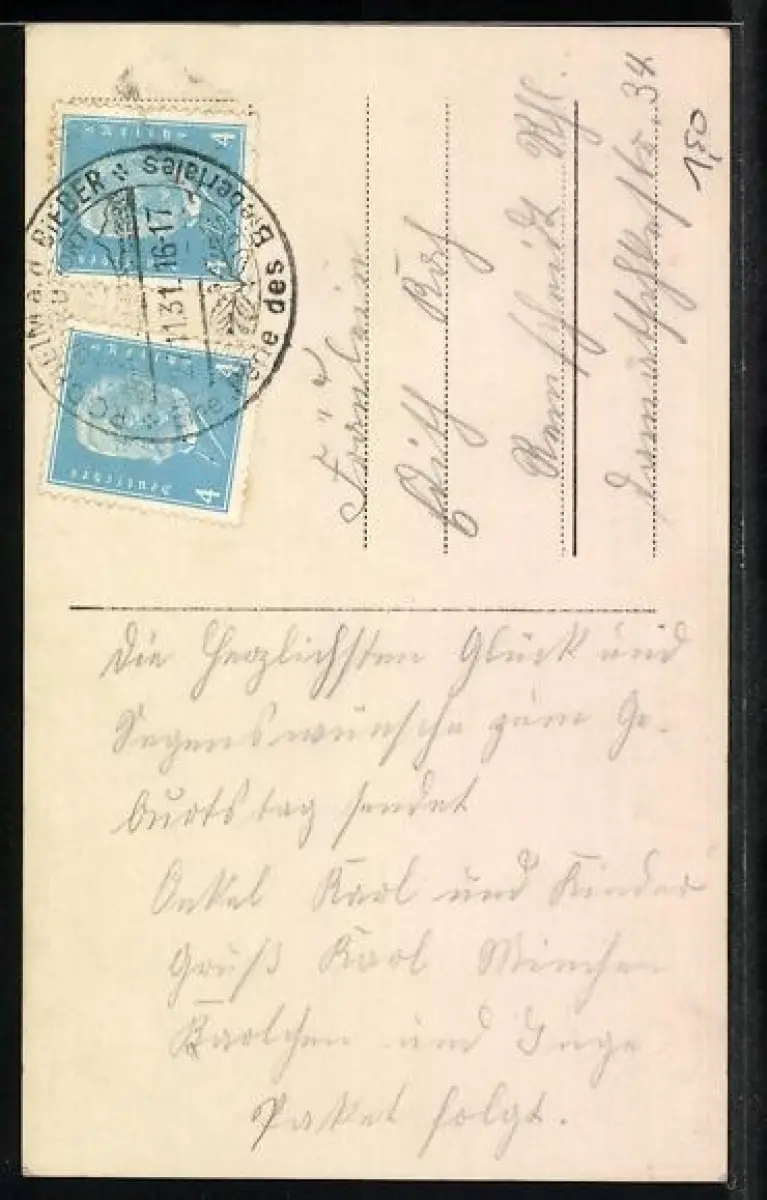 Die herzlichsten Glück und
Segenswünsche zum Ge-
burtstag sendet
Onkel Karl und Kinder
Gruß Karl Minchen
Karlchen und Inge
Paket folgt.
Fräulein
Remscheid Rhl.
34
1,50
Deutsches Reich
4
4
Deutsches Reich
4
4
BIEBER * des Biebertales
11.31. 16-17